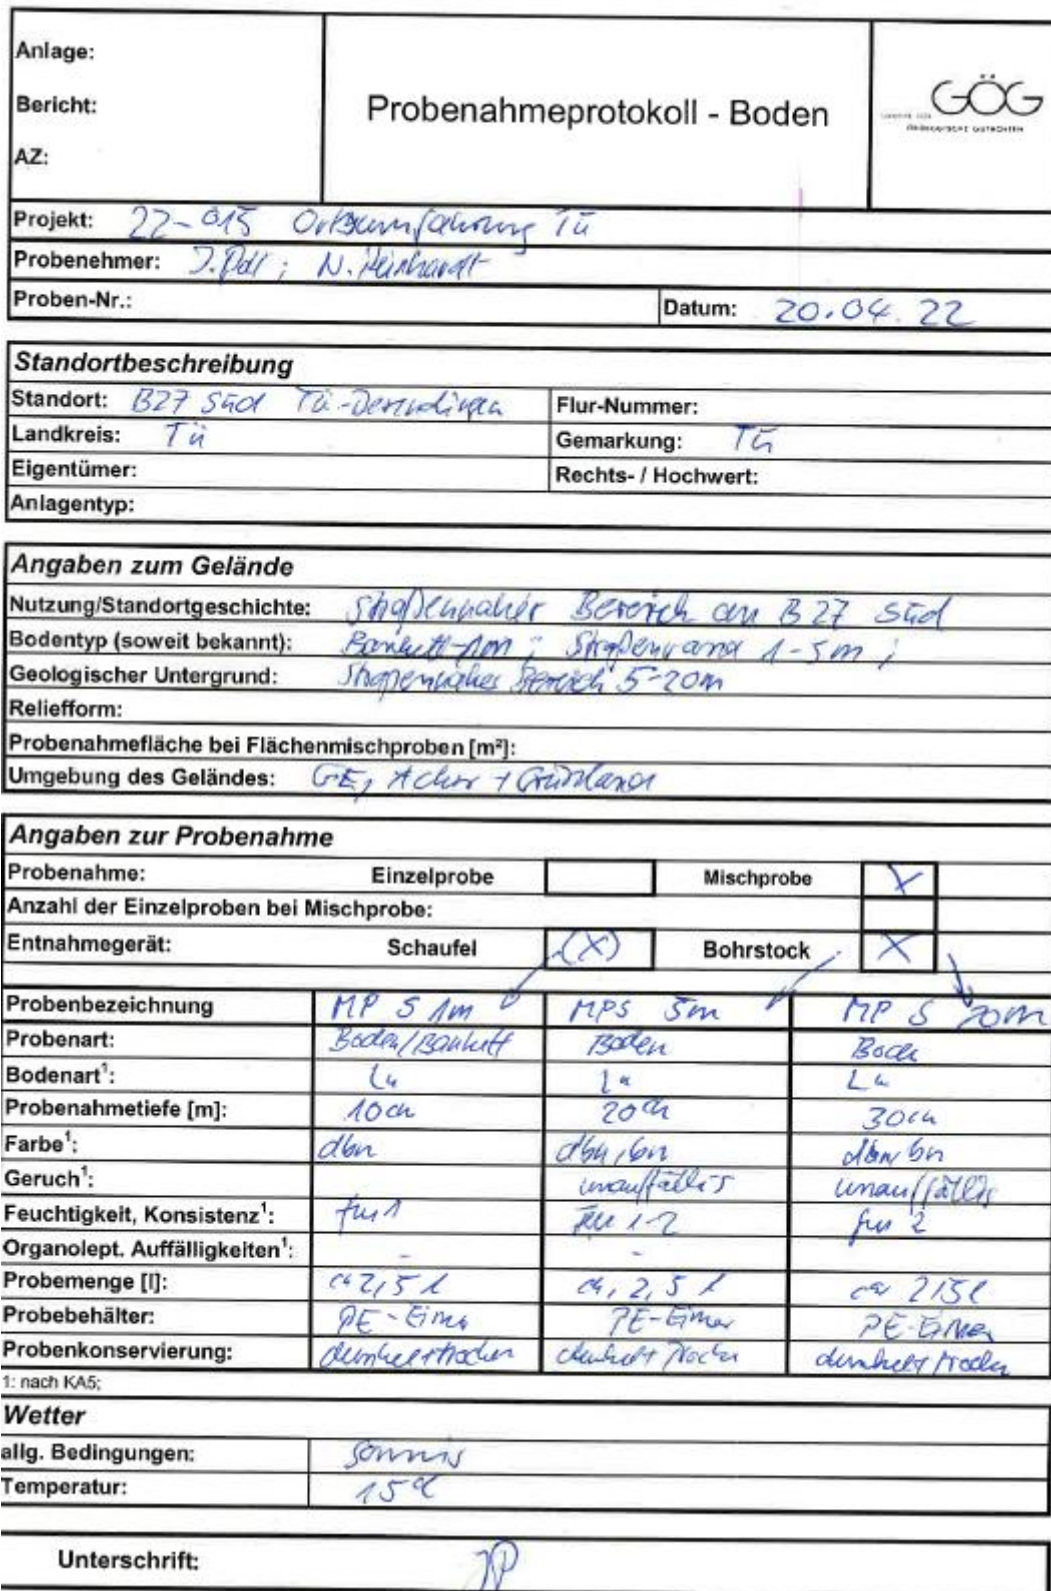 Anlage:
Bericht:
AZ:
Probenahmeprotokoll - Boden
GÖG
Projekt: 22-015 Ortsumfahrung Tü
Probenehmer: N. Reinhardt
Proben-Nr.: Datum: 20.04.22
Standortbeschreibung
Standort: B27 Süd Tü.-Derendingen Flur-Nummer:
Landkreis: Tü Gemarkung: Tü
Eigentümer: Rechts- / Hochwert:
Anlagentyp:
Angaben zum Gelände
Nutzung/Standortgeschichte: Straßennaher Bereich an B27 Süd
Bodentyp (soweit bekannt): Bankett-1m ; Straßenrand 1-5m ;
Geologischer Untergrund: Straßennaher Bereich 5-20m
Reliefform:
Probenahmefläche bei Flächenmischproben [m²]:
Umgebung des Geländes: GE, Acker + Grünland
Angaben zur Probenahme
Probenahme: Einzelprobe Mischprobe X
Anzahl der Einzelproben bei Mischprobe:
Entnahmegerät: Schaufel (X) Bohrstock X
Probenbezeichnung MP S 1m MPS 5m MP S 20m
Probenart: Boden/Bankett Boden Bode
Bodenart¹: Lu Lu Lu
Probenahmetiefe [m]: 10cm 20cm 30cm
Farbe¹: dbn dbn, bn dbn, bn
Geruch¹: unauffällig unauffällig
Feuchtigkeit, Konsistenz¹: feu 1 feu 1-2 feu 2
Organolept. Auffälligkeiten¹: - -
Probemenge [l]: ca 2,5 l ca, 2,5 l ca 2,5 l
Probebehälter: PE-Eimer PE-Eimer PE-Eimer
Probenkonservierung: dunkel+trocken dunkel+trocken dunkel+trocken
1: nach KA5;
Wetter
allg. Bedingungen: sonnig
Temperatur: 15°C
Unterschrift: JP